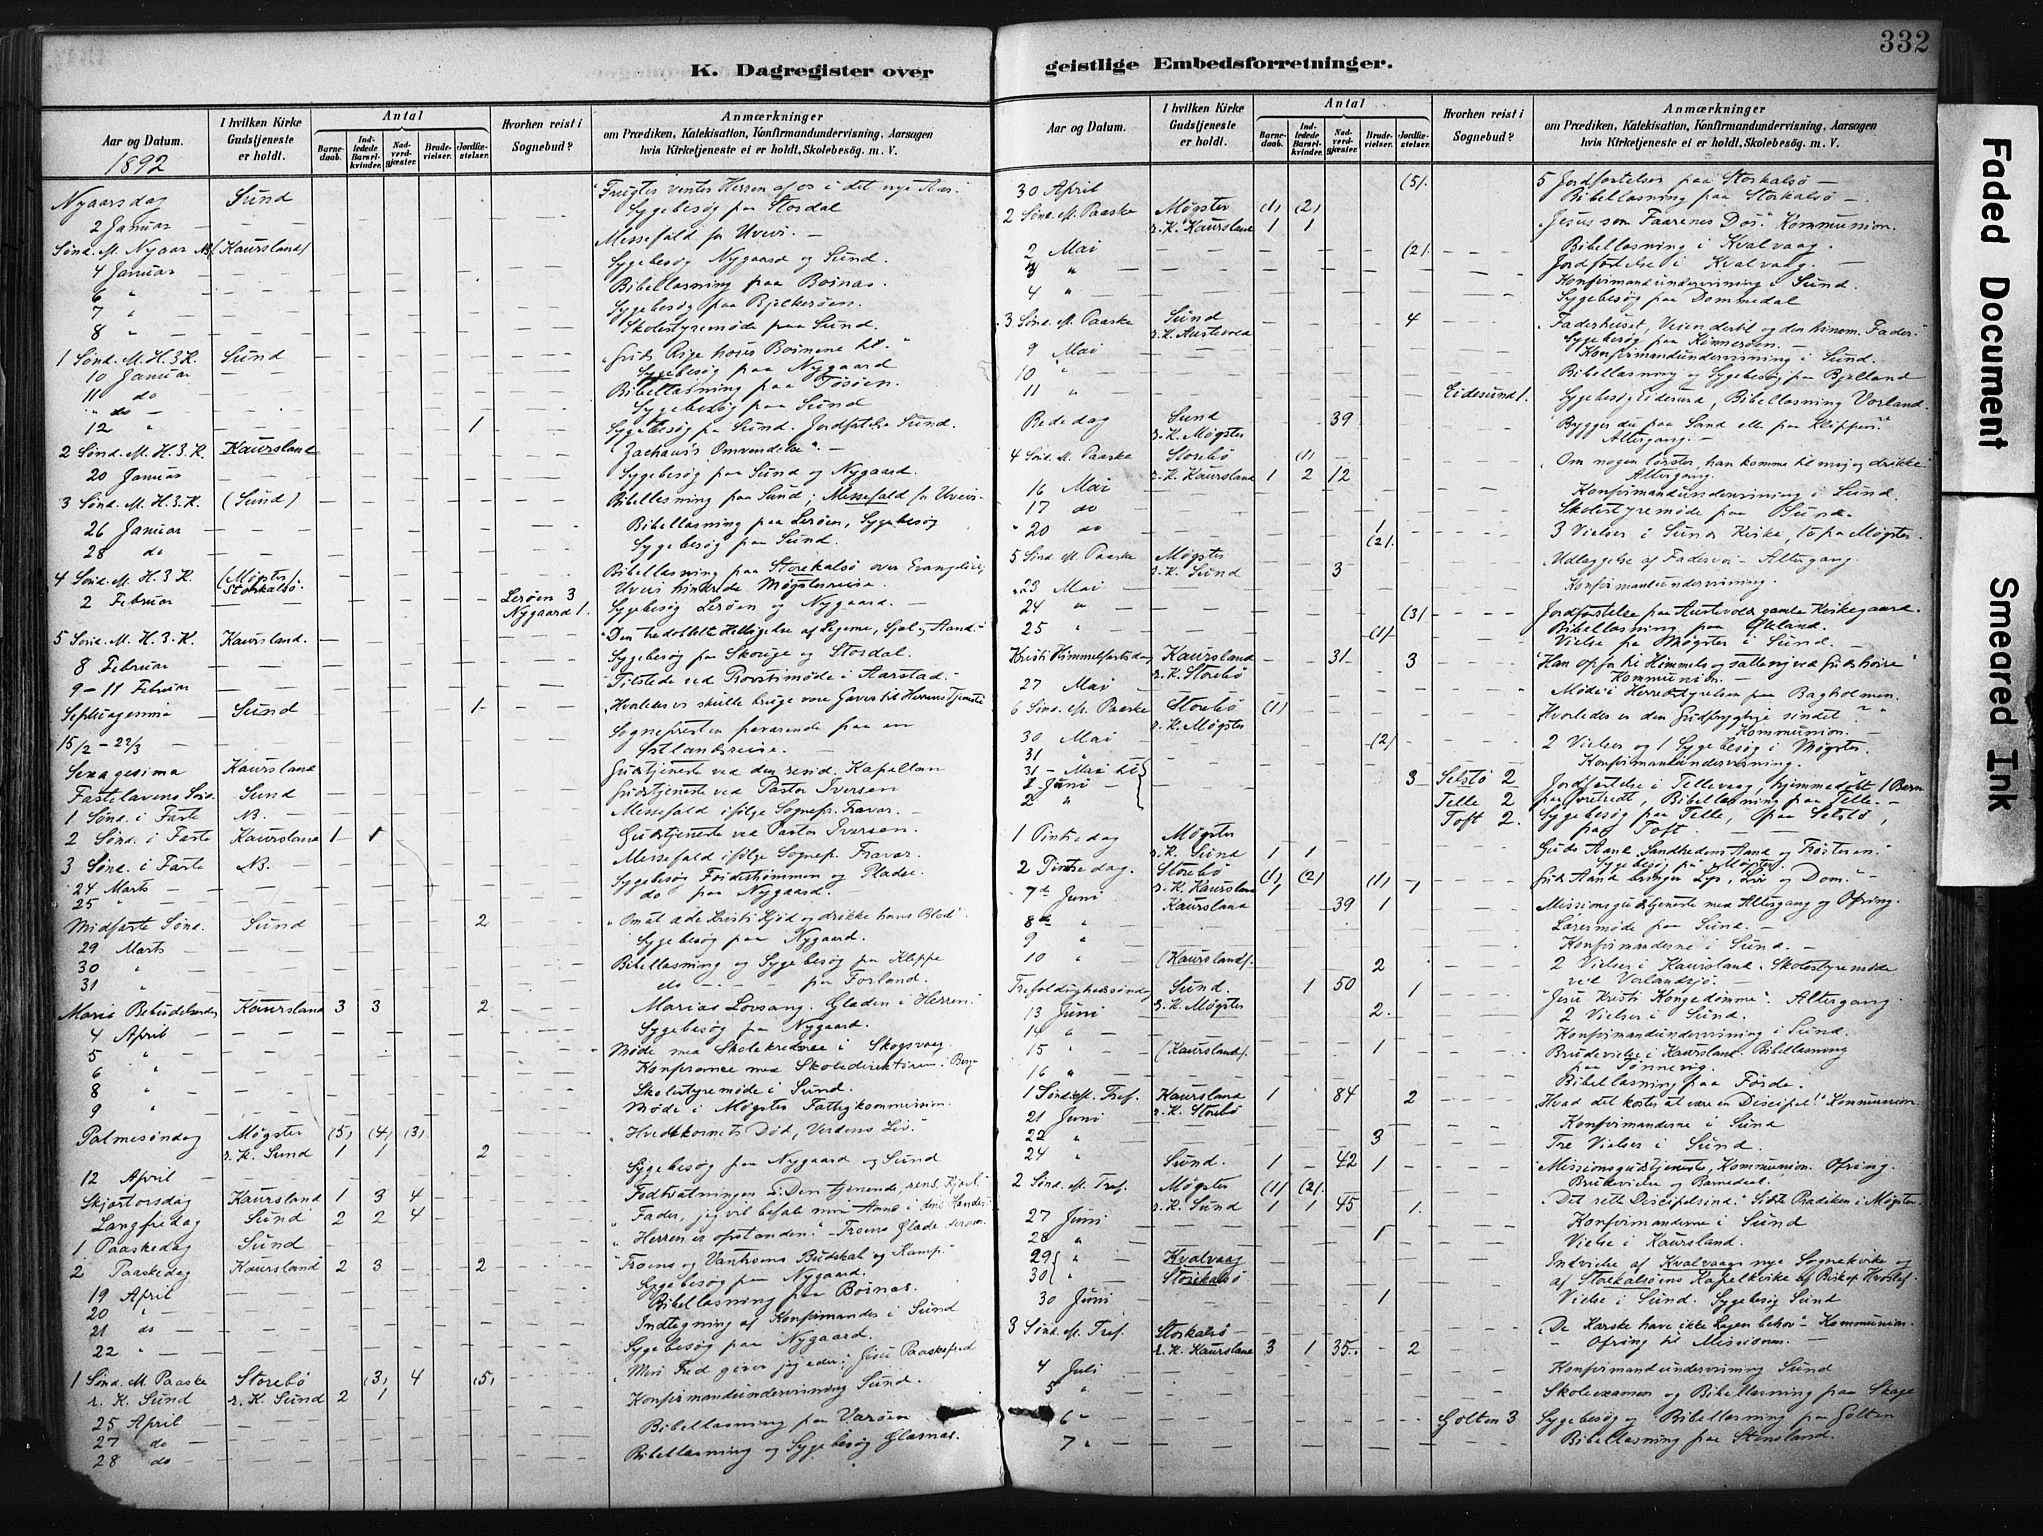 332
K. Dagregister over geistlige Embedsforretninger.
Aar og Datum.
I hvilken Kirke Gudstjeneste er holdt.
Antal
Barnedaab.
Indledede Barselkvinder.
Nadverdgjæster.
Brudevielser.
Jordfæstelser.
Hvorhen reist i Sognebud?
Anmærkninger
om Prædiken, Katekisation, Konfirmandundervisning, Aarsagen
hvis Kirketjeneste ei er holdt, Skolebesög. m. V.
1892
Nyaarsdag Sund "Frugter venter Herren af os i det nye Aar."
2 Januar Sygebesøg paa Stordal
Sønd. M. Nyaar NB (Kaursland) Messefald for Uveir.
4 Januar Sygebesøg Nygaard og Sund.
6 " Bibellæsning paa Boinæs.
7 " Sygebesøg paa Bjelkerøen.
8 " Skolestyremøde paa Sund.
1 Sønd. M. H. 3 K. Sund
10 Januar Sygebesøg paa Nygaard
11 do Bibellæsning paa Tösöen.
" do Sygebesøg paa Sund
12 " 1 Sygebesøg paa Sund. Jordfæstelse Sund.
2 Sønd. M. H. 3. K. Kaursland "Zachæus Omvendelse".
20 Januar Sygebesøg paa Sund og Nygaard.
3 Sønd. M. H. 3. K. (Sund) Bibellæsning paa Sund, Messefald for Uveir
26 Januar Bibellæsning paa Lerøen, Sygebesøg
28 do Sygebesøg paa Sund.
4 Sønd. M. H. 3 K. (Møgster) Storekalsø. Bibellæsning paa Storekalsø over Evangeliet,
Uveir hindrede Møgsterreise.
2 Februar Lerøen 3 Nygaard 1. Sygebesøg Lerøen og Nygaard.
5 Sønd. M. H. 3. K. Kaursland. "Den tredobbelt Helligelse af Legeme, Sjæl og Aand."
8 Februar Sygebesøg paa Skoige og Stordal.
9-11 Februar Tilstede ved Provstimøde i Aarstad.
Septuagesima Sund 1 "Hvorledes vi skulle bruge vore Gaver til Herrens Tjeneste
15/2 - 22/3 Sognepresten fraværende paa en
Østlandsreise.
Sexagesima Kaursland Gudstjeneste ved den resid. Kapellan
Fastelavens Sønd. Sund Gudstjeneste ved Pastor Iversen
1 Sønd. i Faste NB. Messefald ifølge Sognepr. Fravær.
2 Sønd. i Faste Kaursland 1 1 Gudstjeneste ved Pastor Iversen.
3 Sønd. i Faste NB. Messefald ifølge Sognepr. Fravær.
24 Marts
25 " do paa Nygaard.
Midfaste Sønd. Sund 2 "Om at æde Kristi Kjød og drikke hans Blod".
29 Marts Sygebesøg paa Nygaard.
30 " Bibellæsning og Sygebesøg paa Kleppe
31 " do paa Forland.
Mariæ Bebudelsesdag Kaursland 3 3 2 Marias Lovsang. Glæden i Herren.
4 April Sygebesøg paa Nygaard.
5 " Møde med Skolekredsene i Skogsvaag
6 " Konference med Skoledirektøren i Bergen
8 " Skolestyremøde i Sund.
9 " Møde i Møgster Fattigkommission.
Palmesøndag Møgster (5) (4) (3) "Hvedekornets Død, Verdens Liv."
r. K. Sund 1 1 2
12 April Sygebesøg paa Nygaard og Sund
Skjærtorsdag Kaursland 1 3 4 Fodtvætningen
Langfredag Sund 2 2 4 "Fader, jeg vil befale min Aand i dine Hænder
1 Paaskedag Sund "Herren er opstanden"
2 Paaskedag Kaursland 2 3 2 Troens og Vantroens Budskab og Kamp."
19 April Sygebesøg paa Nygaard.
20 " Bibellæsning paa Boinæs.
21 do Indtegning af Konfirmander i Sund
22 " Sygebesøg paa Nygaard.
1 Sønd. M. Paaske Storebø (3) 4 (5) "Min Fred giver jeg eder; Jesu Paaskefred
r. K. Sund r. K. Sund 2 1 Konfirmandundervisning Sund.
25 April
27 do Bibellæsning paa Varøen
28 do Bibellæsning og Sygebesøg Glæsnæs.
Aar og Datum.
I hvilken Kirke Gudstjeneste er holdt.
Antal
Barnedaab.
Indledede Barselkvinder.
Nadverdgjæster.
Brudevielser.
Jordfæstelser.
Hvorhen reist i Sognebud?
Anmærkninger
om Prædiken, Katekisation, Konfirmandundervisning, Aarsagen
hvis Kirketjeneste ei er holdt, Skolebesög. m. V.
30 April (5). 5 Jordfæstelser paa Storkalsø
Bibellæsning paa Storkalsø
2 Sønd. M. Paaske Møgster (1) (2) "Jesus som Faarenes Dør." Kommunion.
r. K. Kaursland 1 1
2 Mai (2). Bibellæsning i Kvalvaag.
3 " Jordfæstelse i Kvalvaag.
4 " Konfirmandundervisning i Sund.
Sygebesøg paa Dommedal
3 Sønd. M. Paaske Sund 4 "Faderhuset, Veien dertil og den hinom. Fader."
r. K. Austevold
9 Mai Konfirmandundervisning i Sund.
10 " Bibellæsning og Sygebesøg paa Bjelland
11 " Eidesund 1. Sygebesøg Eidesund, Bibellæsning Vorland.
Bededag Sund 39 "Bygger du paa Sand eller paa Klippen?"
r. K. Møgster Altergang.
4 Sønd. M. Paaske Storebø (1) "Om nogen tørster, han komme til mig og drikke"
r. K. Kaursland 1 2 12 Altergang.
16 Mai Konfirmandundervisning i Sund.
17 do Skolestyremøde paa Sund.
20 do 1 (2). 3 Vielser i Sunds Kirke, to fra Møgster.
5 Sønd. M. Paaske Møgster Udlæggelse af Fadervor - Altergang.
r. K. Sund 3
23 Mai Konfirmandundervisning.
24 " (3) Jordfæstelse paa Austevolds gamle Kirkegaard.
25 " (1) Vielse fra Møgster i Sund.
Kristi Himmelfartsdag Kaursland 31 3 "Han opfor til Himmels og satte sig ved Guds høire"
r. K. Storebø Kommunion.
27 Mai Møde i Herredstyrelsen paa Bagholmen.
6 Sønd. M. Paaske Storebø (1) Hvorledes er den Gudfrygtige sindet?"
r. K. Møgster Kommunion.
30 Mai (2) 2 Vielser og 1 Sygebesøg i Møgster.
31 " Konfirmandundervisning.
31 - Mai til 3 Selstø 2
1 Juni Telle 2
2 " Toft 2. Sygebesøg paa Telle, paa Selstø,
paa Toft.
1 Pintsedag Møgster
r. K. Sund 1 1 Guds Aand, Sandhedens Aand og Trøsteren."
Sygebesøg paa Møgster.
2 Pintsedag Storebø (1) (2) (1) Guds Aand bringer Lys, Liv og Dom."
r. K. Kaursland 1 1
7de Juni Kaursland 39 1 Missionsgudstjeneste med Altergang og Ofring.
8de " Læremøde paa Sund.
9 " Konfirmanderne i Sund.
10 " (Kaursland). 2 2 Vielser i Kaursland. Skolestyremøde
ved Vorlandsjø.
Trefoldighedssøndag Sund. 1 50 1 "Jesu Kristi Kongedømme". Altergang.
13 Juni r. K. Møgster 2. 2 Vielser i Sund.
14 " Konfirmandundervisning i Sund.
15 " (Kaursland). 1 Brudevielse i Kaursland. Bibellæsning
paa Tønnevig.
16 " Bibellæsning paa Førde.
1 Sønd. M. Tref. Kaursland 1 84 2 "Hvad det koster at være en Discipel!" Kommunion.
21 Juni r. K. Storebø Konfirmanderne i Sund
22 " 3 Tre Vielser i Sund.
24 " Sund. 1 42 1 Missionsgudstjeneste, Kommunion. Ofring.
Brudevielse og Barnedaab.
2 Sønd. M. Tref. Møgster (1) (2). "Det rette Discipelsind." Sidste Prædiken i Møgster.
27 Juni r. K. Sund 1 1 45 1. Konfirmanderne i Sund
28 " 1 Vielse i Kaursland.
29 " Kvalvaag Indvielse af Kvalvaags nye Sognekirke og
30 " Storekalsø af Storekalsøens Kapelkirke af Biskop Hvoslef.
30 Juni 1 Vielse i Sund. Sygebesøg Sund
3 Sønd. M. Tref. Storkalsø "De Karske have ikke Lægen behov" Kommunion.
r. K. Kaursland 3 1 35 2 Ofring til Missionen.
4 Juli Konfirmandundervisning Sund
5 " Skoleexamen og Bibellæsning paa Skage
6 " Golten 3 Sygebesøg og Bibellæsning paa Golten
7 " Bibellæsning paa Steinsland.
Faded Document
Smeared Ink